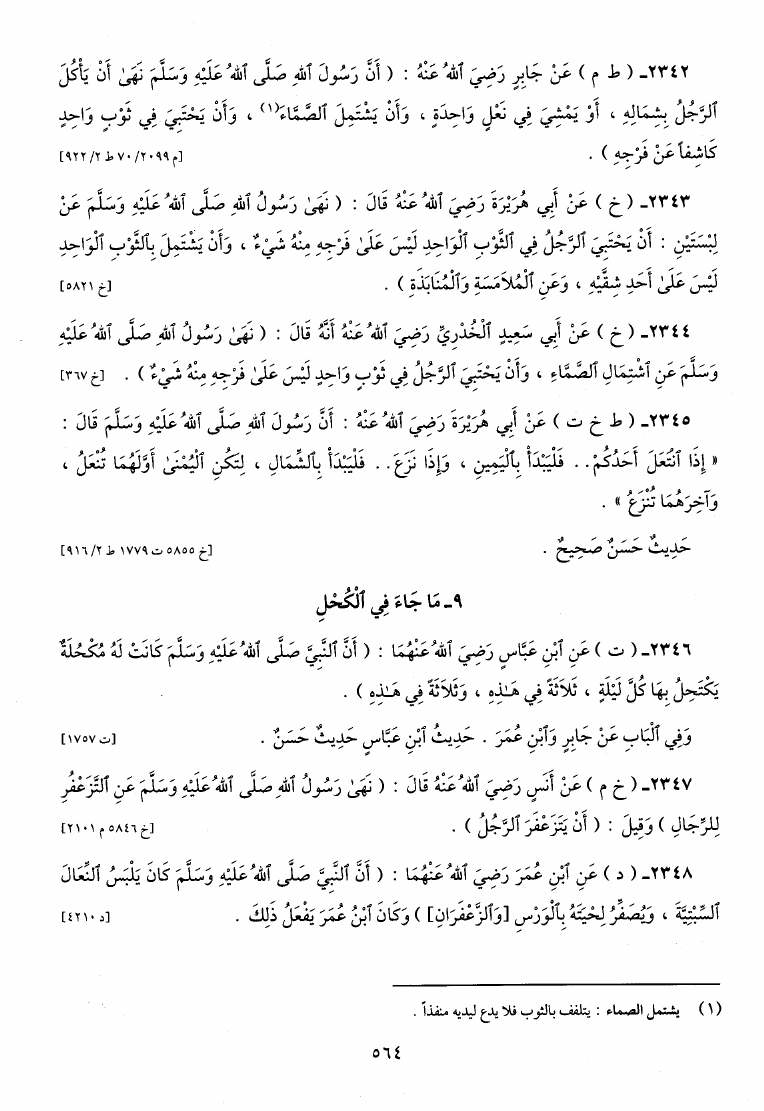 ٢٣٤٢ـ ( ط م ) عَنْ جَابِرٍ رَضِيَ ٱللهُ عَنْهُ : ( أَنَّ رَسُولَ ٱللهِ صَلَّى ٱللهُ عَلَيْهِ وَسَلَّمَ نَهَىٰ أَنْ يَأْكُلَ
ٱلرَّجُلُ بِشِمَالِهِ ، أَوْ يَمْشِيَ فِي نَعْلٍ وَاحِدَةٍ ، وَأَنْ يَشْتَمِلَ ٱلصَّمَّاءَ(١) ، وَأَنْ يَحْتَبِيَ فِي ثَوْبٍ وَاحِدٍ
كَاشِفاً عَنْ فَرْجِهِ ) . [م ٧٠/٢٠٩٩ ط ٩٢٢/٢]
٢٣٤٣ـ ( خ ) عَنْ أَبِي هُرَيْرَةَ رَضِيَ ٱللهُ عَنْهُ قَالَ : ( نَهَىٰ رَسُولُ ٱللهِ صَلَّى ٱللهُ عَلَيْهِ وَسَلَّمَ عَنْ
لِبْسَتَيْنِ : أَنْ يَحْتَبِيَ ٱلرَّجُلُ فِي ٱلثَّوْبِ ٱلْوَاحِدِ لَيْسَ عَلَىٰ فَرْجِهِ مِنْهُ شَيْءٌ ، وَأَنْ يَشْتَمِلَ بِٱلثَّوْبِ ٱلْوَاحِدِ
لَيْسَ عَلَىٰ أَحَدِ شِقَّيْهِ ، وَعَنِ ٱلْمُلاَمَسَةِ وَٱلْمُنَابَذَةِ ) . [خ ٥٨٢١]
٢٣٤٤ـ ( خ ) عَنْ أَبِي سَعِيدٍ ٱلْخُدْرِيِّ رَضِيَ ٱللهُ عَنْهُ أَنَّهُ قَالَ : ( نَهَىٰ رَسُولُ ٱللهِ صَلَّى ٱللهُ عَلَيْهِ
وَسَلَّمَ عَنِ ٱشْتِمَالِ ٱلصَّمَّاءِ ، وَأَنْ يَحْتَبِيَ ٱلرَّجُلُ فِي ثَوْبٍ وَاحِدٍ لَيْسَ عَلَىٰ فَرْجِهِ مِنْهُ شَيْءٌ ) . [خ ٣٦٧]
٢٣٤٥ـ ( ط خ ت ) عَنْ أَبِي هُرَيْرَةَ رَضِيَ ٱللهُ عَنْهُ : أَنَّ رَسُولَ ٱللهِ صَلَّى ٱللهُ عَلَيْهِ وَسَلَّمَ قَالَ :
« إِذَا ٱنْتَعَلَ أَحَدُكُمْ . . فَلْيَبْدَأْ بِٱلْيَمِينِ ، وَإِذَا نَزَعَ . . فَلْيَبْدَأْ بِٱلشِّمَالِ ، لِتَكُنِ ٱلْيُمْنَىٰ أَوَّلَهُمَا تُنْعَلُ ،
وَآخِرَهُمَا تُنْزَعُ » .
حَدِيثٌ حَسَنٌ صَحِيحٌ . [خ ٥٨٥٥ ت ١٧٧٩ ط ٩١٦/٢]
٩ـ مَا جَاءَ فِي ٱلْكُحْلِ
٢٣٤٦ـ ( ت ) عَنِ ٱبْنِ عَبَّاسٍ رَضِيَ ٱللهُ عَنْهُمَا : ( أَنَّ ٱلنَّبِيَّ صَلَّى ٱللهُ عَلَيْهِ وَسَلَّمَ كَانَتْ لَهُ مُكْحُلَةٌ
يَكْتَحِلُ بِهَا كُلَّ لَيْلَةٍ ، ثَلاَثَةً فِي هَـٰذِهِ ، وَثَلاَثَةً فِي هَـٰذِهِ ) .
وَفِي ٱلْبَابِ عَنْ جَابِرٍ وَٱبْنِ عُمَرَ . حَدِيثُ ٱبْنِ عَبَّاسٍ حَدِيثٌ حَسَنٌ . [ت ١٧٥٧]
٢٣٤٧ـ ( خ م ) عَنْ أَنَسٍ رَضِيَ ٱللهُ عَنْهُ قَالَ : ( نَهَىٰ رَسُولُ ٱللهِ صَلَّى ٱللهُ عَلَيْهِ وَسَلَّمَ عَنِ ٱلتَّزَعْفُرِ
لِلرِّجَالِ ) وَقِيلَ : ( أَنْ يَتَزَعْفَرَ ٱلرَّجُلُ ) . [خ ٥٨٤٦ م ٢١٠١]
٢٣٤٨ـ ( د ) عَنِ ٱبْنِ عُمَرَ رَضِيَ ٱللهُ عَنْهُمَا : ( أَنَّ ٱلنَّبِيَّ صَلَّى ٱللهُ عَلَيْهِ وَسَلَّمَ كَانَ يَلْبَسُ ٱلنِّعَالَ
ٱلسِّبْتِيَّةَ ، وَيُصَفِّرُ لِحْيَتَهُ بِٱلْوَرْسِ [وَٱلزَّعْفَرَانِ] ) وَكَانَ ٱبْنُ عُمَرَ يَفْعَلُ ذَلِكَ . [د ٤٢١٠]
(١) يشتمل الصماء : يتلفف بالثوب فلا يدع ليديه منفذاً .
٥٦٤